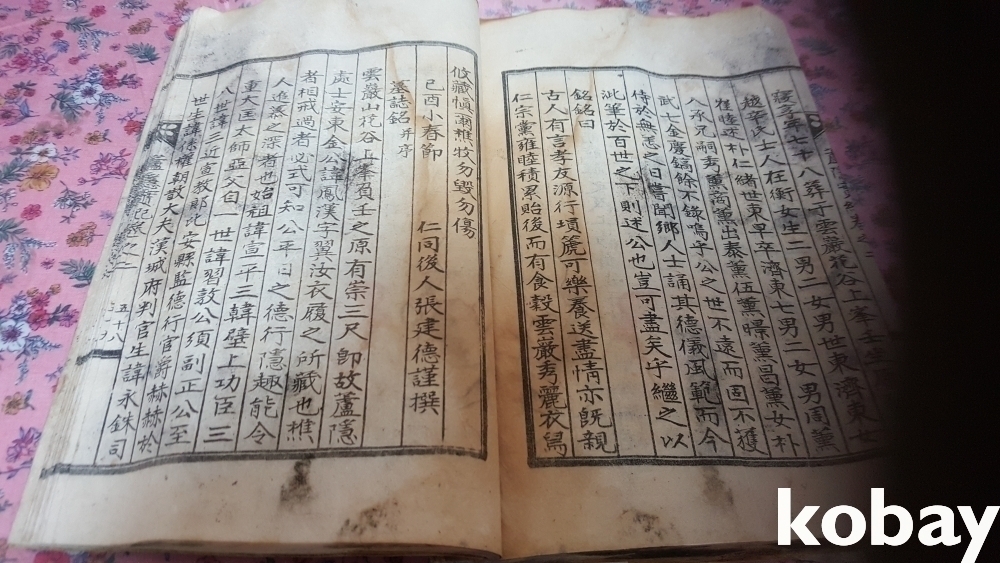 壽多年七十八葬于雲巖花谷上峯壬生
越辛氏士人在衡女生二男二女男世東濟東女
權睦述朴仁緖世東早卒濟東七男二女男周薰
八承兄嗣秀薰商薰出泰薰伍薰暻薰昌薰女朴
武七金慶鎬餘不錄嗚乎公之世不遠而固不獲
侍於無恙之日嘗聞鄕人士誦其德儀風範而今
此筆於百世之下則述公也豈可盡矣乎繼之以
銘銘曰
古人有言孝友源行塤箎可樂養送盡情亦旣親
仁宗黨雍睦積累貽後而有食穀雲巖秀麗衣舃
攸藏愼爾樵牧勿毁勿傷
己酉小春節 仁同後人張建德謹撰
墓誌銘 并序
雲巖山花谷上峯負壬之原有崇三尺卽故蘆隱
處士安東金公諱鳳漢字翼汝衣履之所藏也樵
者相戒過者必式可知公平日之德行隱趣能令
人追慕之深者也始祖諱宣平三韓壁上功臣三
重大匡太師亞父自一世諱習敦公須副正公至
八世諱三近宣敎郞比安縣監德行官爵赫赫於
世生諱係權朝散大夫漢城府判官生諱永銖司
五十八
kobay